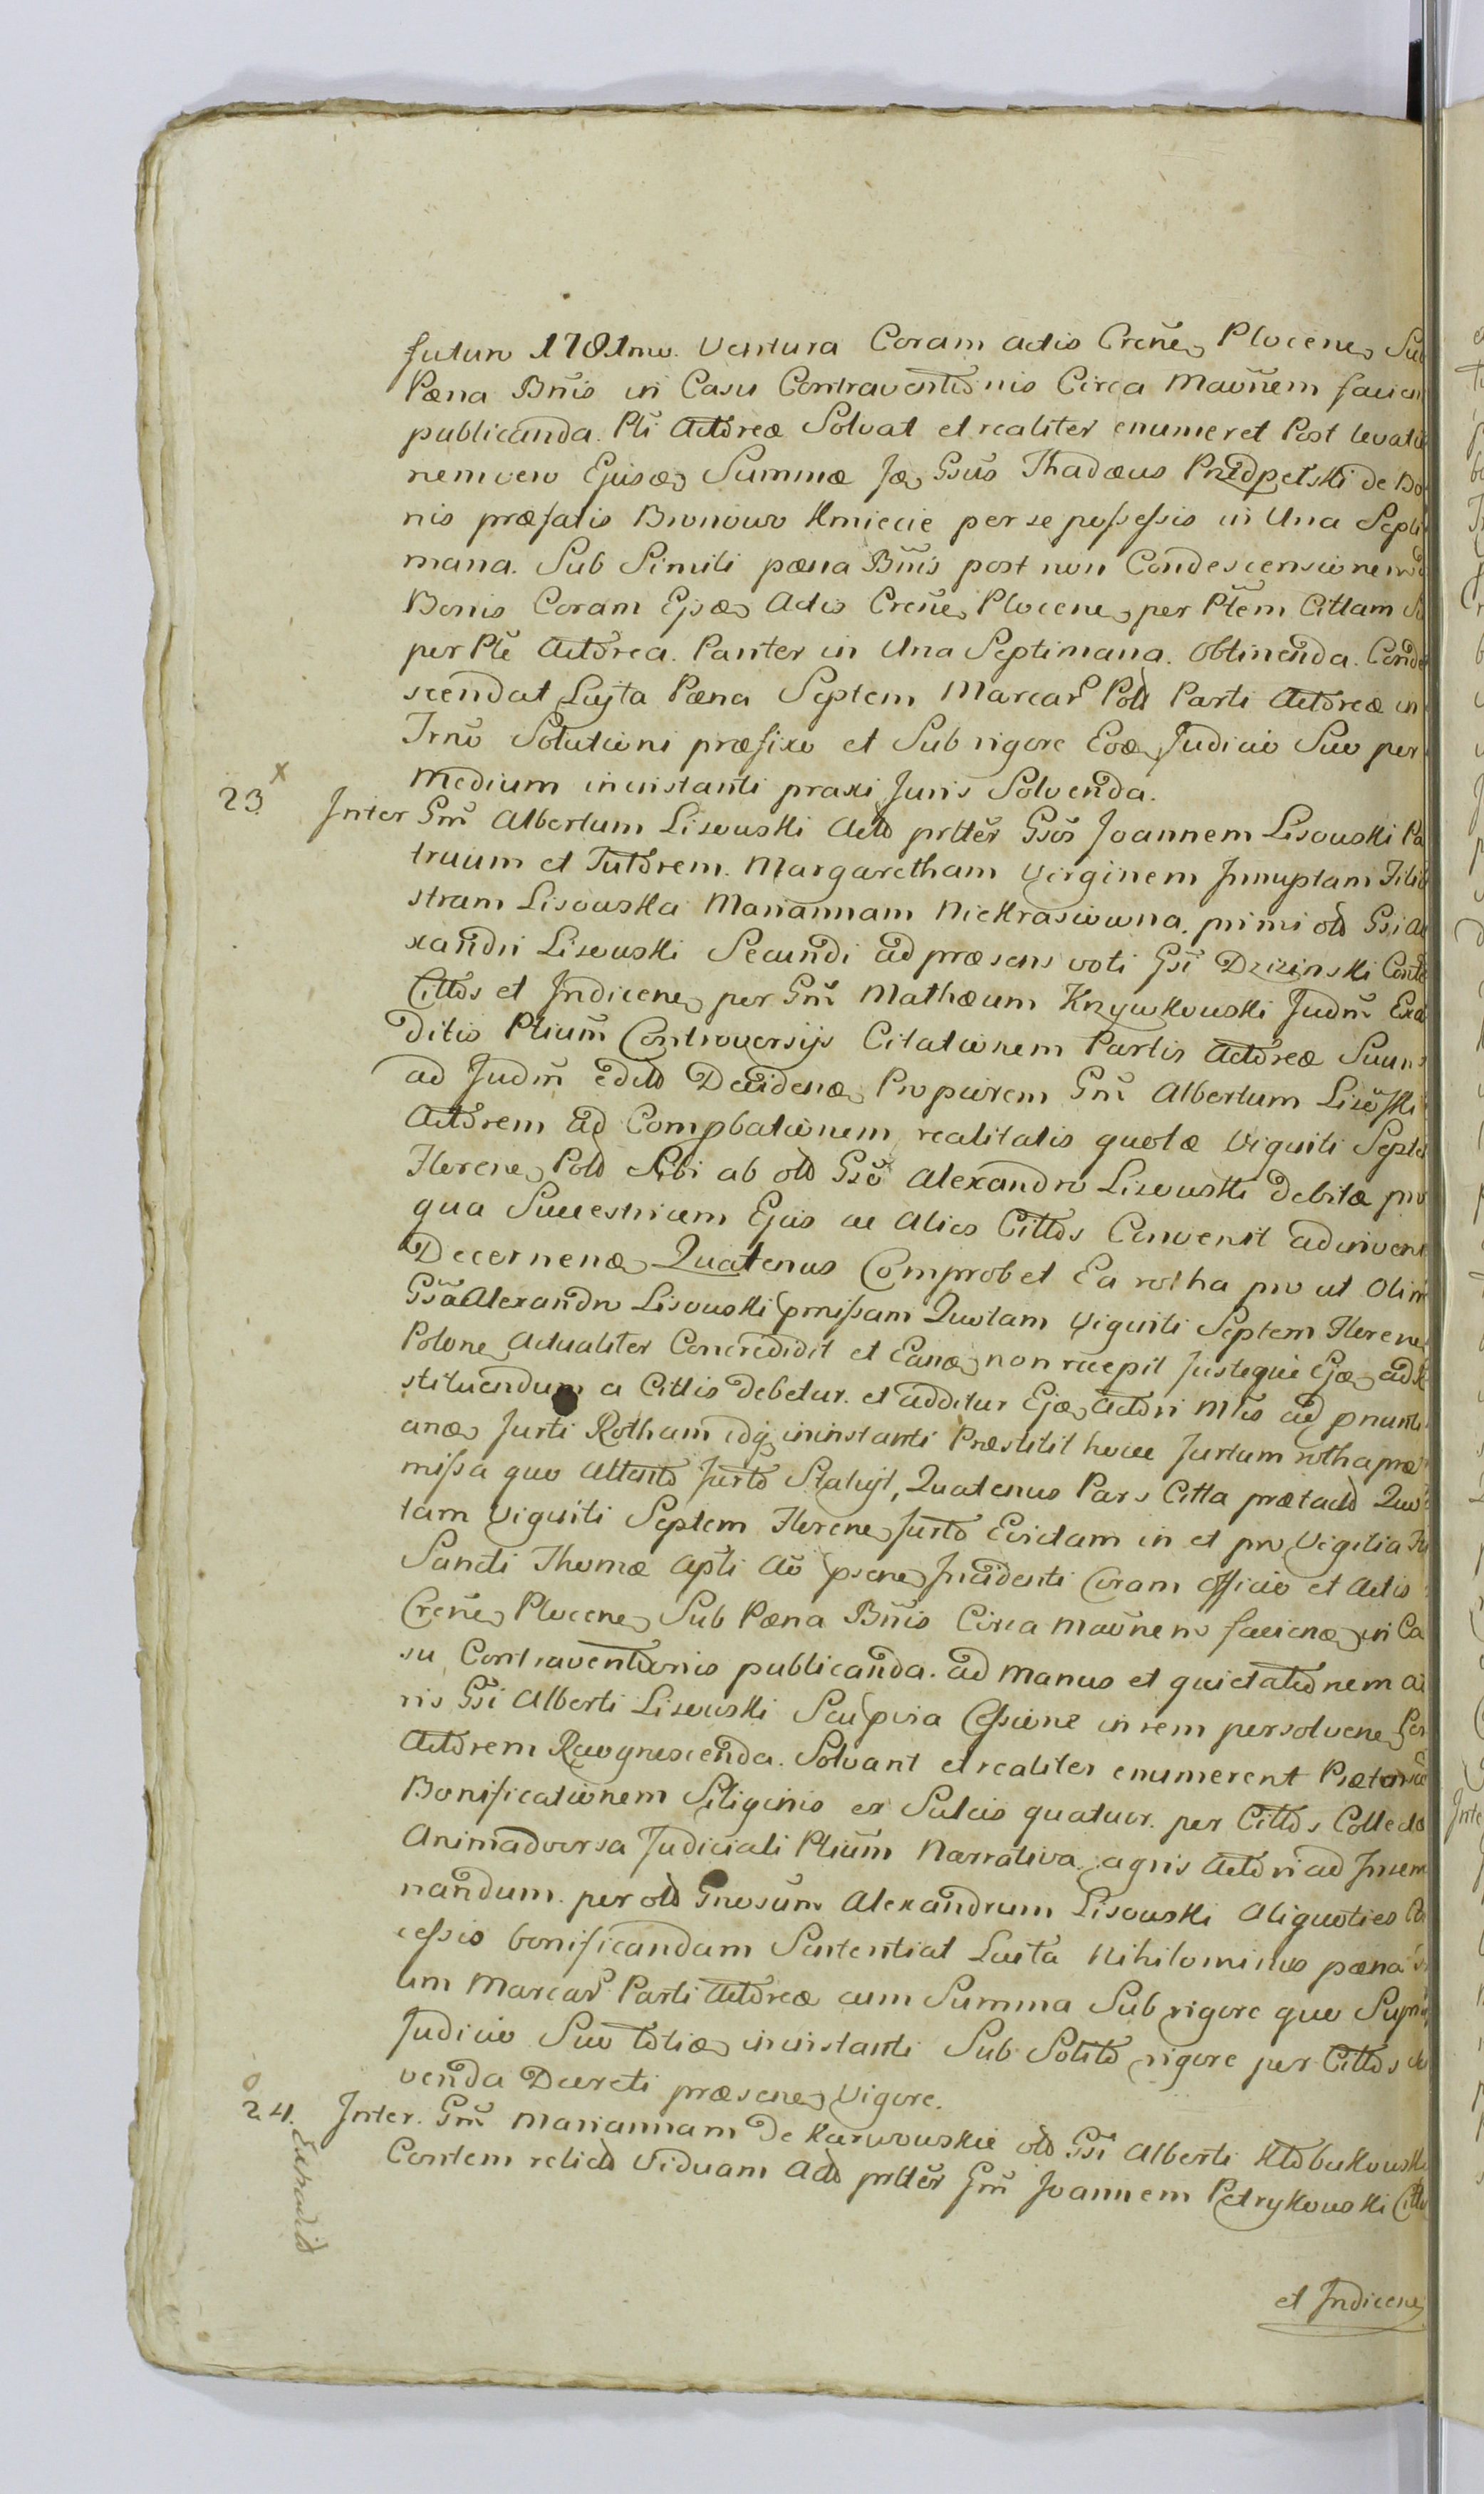 futuro 1781mo. Ventura Coram actis Crense, Plocense, Sub
Pæna Bnis in Casu Contraventionis Circa Maunem facien
publicanda. Pti Actoreæ Solvat et realiter enumeret Post levatio
nem vero Ejusæ, Summæ Jæ, Gsus Thadæus de Bo
nis præfatis Bronowo Kmiecie per se possessis in Una Septi
mana. Sub Simili pæna Bnis post non Condescensionem
Bonis Coram Ejsæ, Actis Crene, Plocene, per Ptem Cittam
per Pte Actorea. Pariter in Una Septimana. Obtinenda. Conde
scendat Lujta Pæna Septem Marcar Poll Parti Actoreæ in
Trno Solutioni præfixo et Sub rigore Eoæ, Judicio Suo per
Medium in instanti praxi Juris Solvenda.
23. x Inter Gm Albertum Lisowski Acto prtter Gsos Joannem Lisowski Pa
truum et Tutorem. Margaretham Virginem Innuptam Filia
stram Lisowska Mariannam Niekrasiowna. primi olo Gsi Ale
xandri Lisowski Secundi ad præsens voti Gsi Dzizinski Conto
Cittos et Indicene, per Gm Mathæum Krzywkowski Judm Exa
ditis Ptium Controversijs Citationem Partis Actoreæ Suum
ad Judm edito Decidenæ, Propiorem Gm Albertum Lisowski
Actorem ad Comprobationem realitatis quotæ Viginti Septe
Florene, Polo Sibi ab olo Gso Alexandro Lisowski debitæ pro
qua Successricem Ejus ac Alios Cittos Convenit adinveni
Decernenæ, Quatenus Comprobet Ea rotha pro ut Olim
Gsa Alexandro Lisowski pmissam Quotam Viginti Septem Florene,
Polone, Actualiter Concredidit et Eanæ, non recepit Justeque Ejæ, ad Re
stituendum a Cittis debetur. et additur Ejæ, Actori Mtis ad pnunti
anæ, Jurti Rotham idq, in instanti Præstitit hocce Jurtum rotha præ
missa quo Attento Jurto Statuit, Quatenus Pars Citta prætacto Quo
tam Viginti Septem Florene, Jurto Evictam in et pro Vigilia
Sancti Thomæ Apti Ao psene, Incidenti Coram Officio et Actis
Crene, Plocene, Sub Pæna Bnis Circa Maunem facienæ, in Ca
su Contraventionis publicanda. ad Manus et quietationem
ris Gsi Alberti Lisowski Seu pvia Cessione in rem persolvene, Per
Actorem Recognoscenda. Solvant et realiter enumerent
Bonificationem Siliginis ex Sulcis quatuor. per Cittos Collecta
Animadversa Judiciali Ptium Narrativa. agris Actori ad Insemi
nandum. per olo Gnosum Alexandrum Lisowski Aliquoties
cessis bonificandam Sententiat Luita Nihilominus pæna
um Marcar Parti Actoreæ cum Summa Sub rigore quo Supra
Judicio Suo totiæ, in instanti Sub Solito rigore per Cittos
venda Decreti præsene, Vigore.
24. Inter. Gm Mariannam De Karwowskie olo Gsi Alberti Ktobukowski
Contem relicto Viduam Acto prtter Gm Joannem Petrykowski Citto
et Indicene,